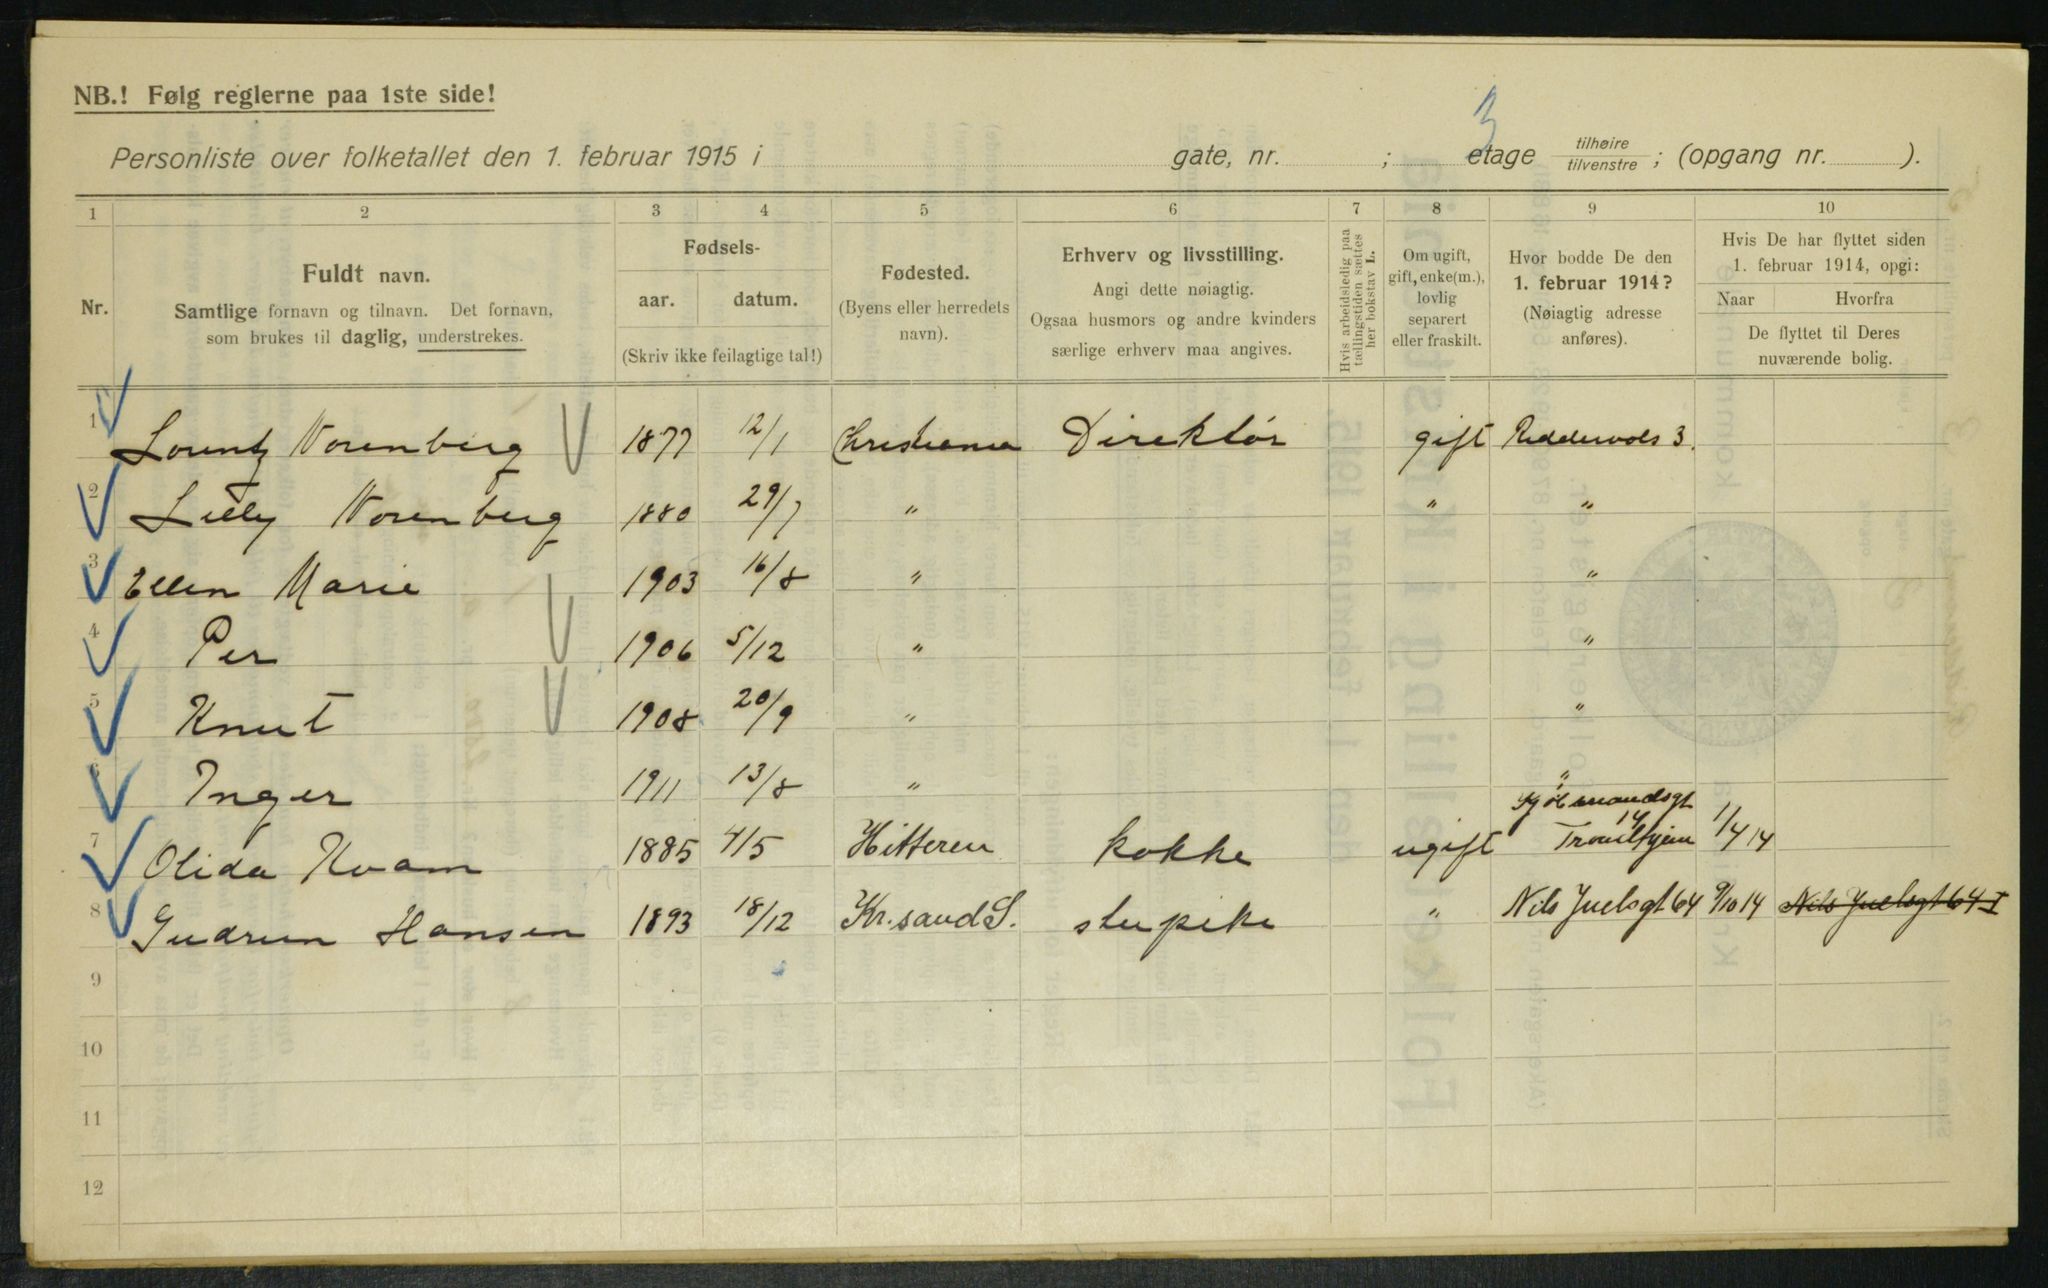 NB.! Følg reglerne paa 1ste side!
Personliste over folketallet den 1. februar 1915 i gate, nr. ; 3 etage tilhøire tilvenstre ; (opgang nr. ).
1 2 3 4 5 6 7 8 9 10
Nr.
Fuldt navn.
Samtlige fornavn og tilnavn. Det fornavn,
som brukes til daglig, understrekes.
Fødsels-
aar. datum.
(Skriv ikke feilagtige tal!)
Fødested.
(Byens eller herredets
navn).
Erhverv og livsstilling.
Angi dette nøiagtig.
Ogsaa husmors og andre kvinders
særlige erhverv maa angives.
Hvis arbeidsledig paa
tællingstiden sættes
her bokstav L.
Om ugift,
gift, enke(m.),
lovlig
separert
eller fraskilt.
Hvor bodde De den
1. februar 1914?
(Nøiagtig adresse
anføres).
Hvis De har flyttet siden
1. februar 1914, opgi:
Naar Hvorfra
De flyttet til Deres
nuværende bolig.
1 Lorentz Vorenberg 1877 12/1 Christiania Direktør gift Riddervolds 3.
2 Lilly Vorenberg 1880 29/7 " " "
3 Ellen Marie 1903 16/8 " "
4 Per 1906 5/12 " "
5 Knut 1908 20/9 " "
6 Inger 1911 13/8 " "
7 Olida Kvam 1885 4/5 Hitteren kokke ugift 14 Trondhjem 1/4 14
8 Gudrun Hansen 1893 18/12 Kr.sand S. stupike " Nils Juelsgt 64 9/10 14 Nils Juelsgt 64 I
9
10
11
12